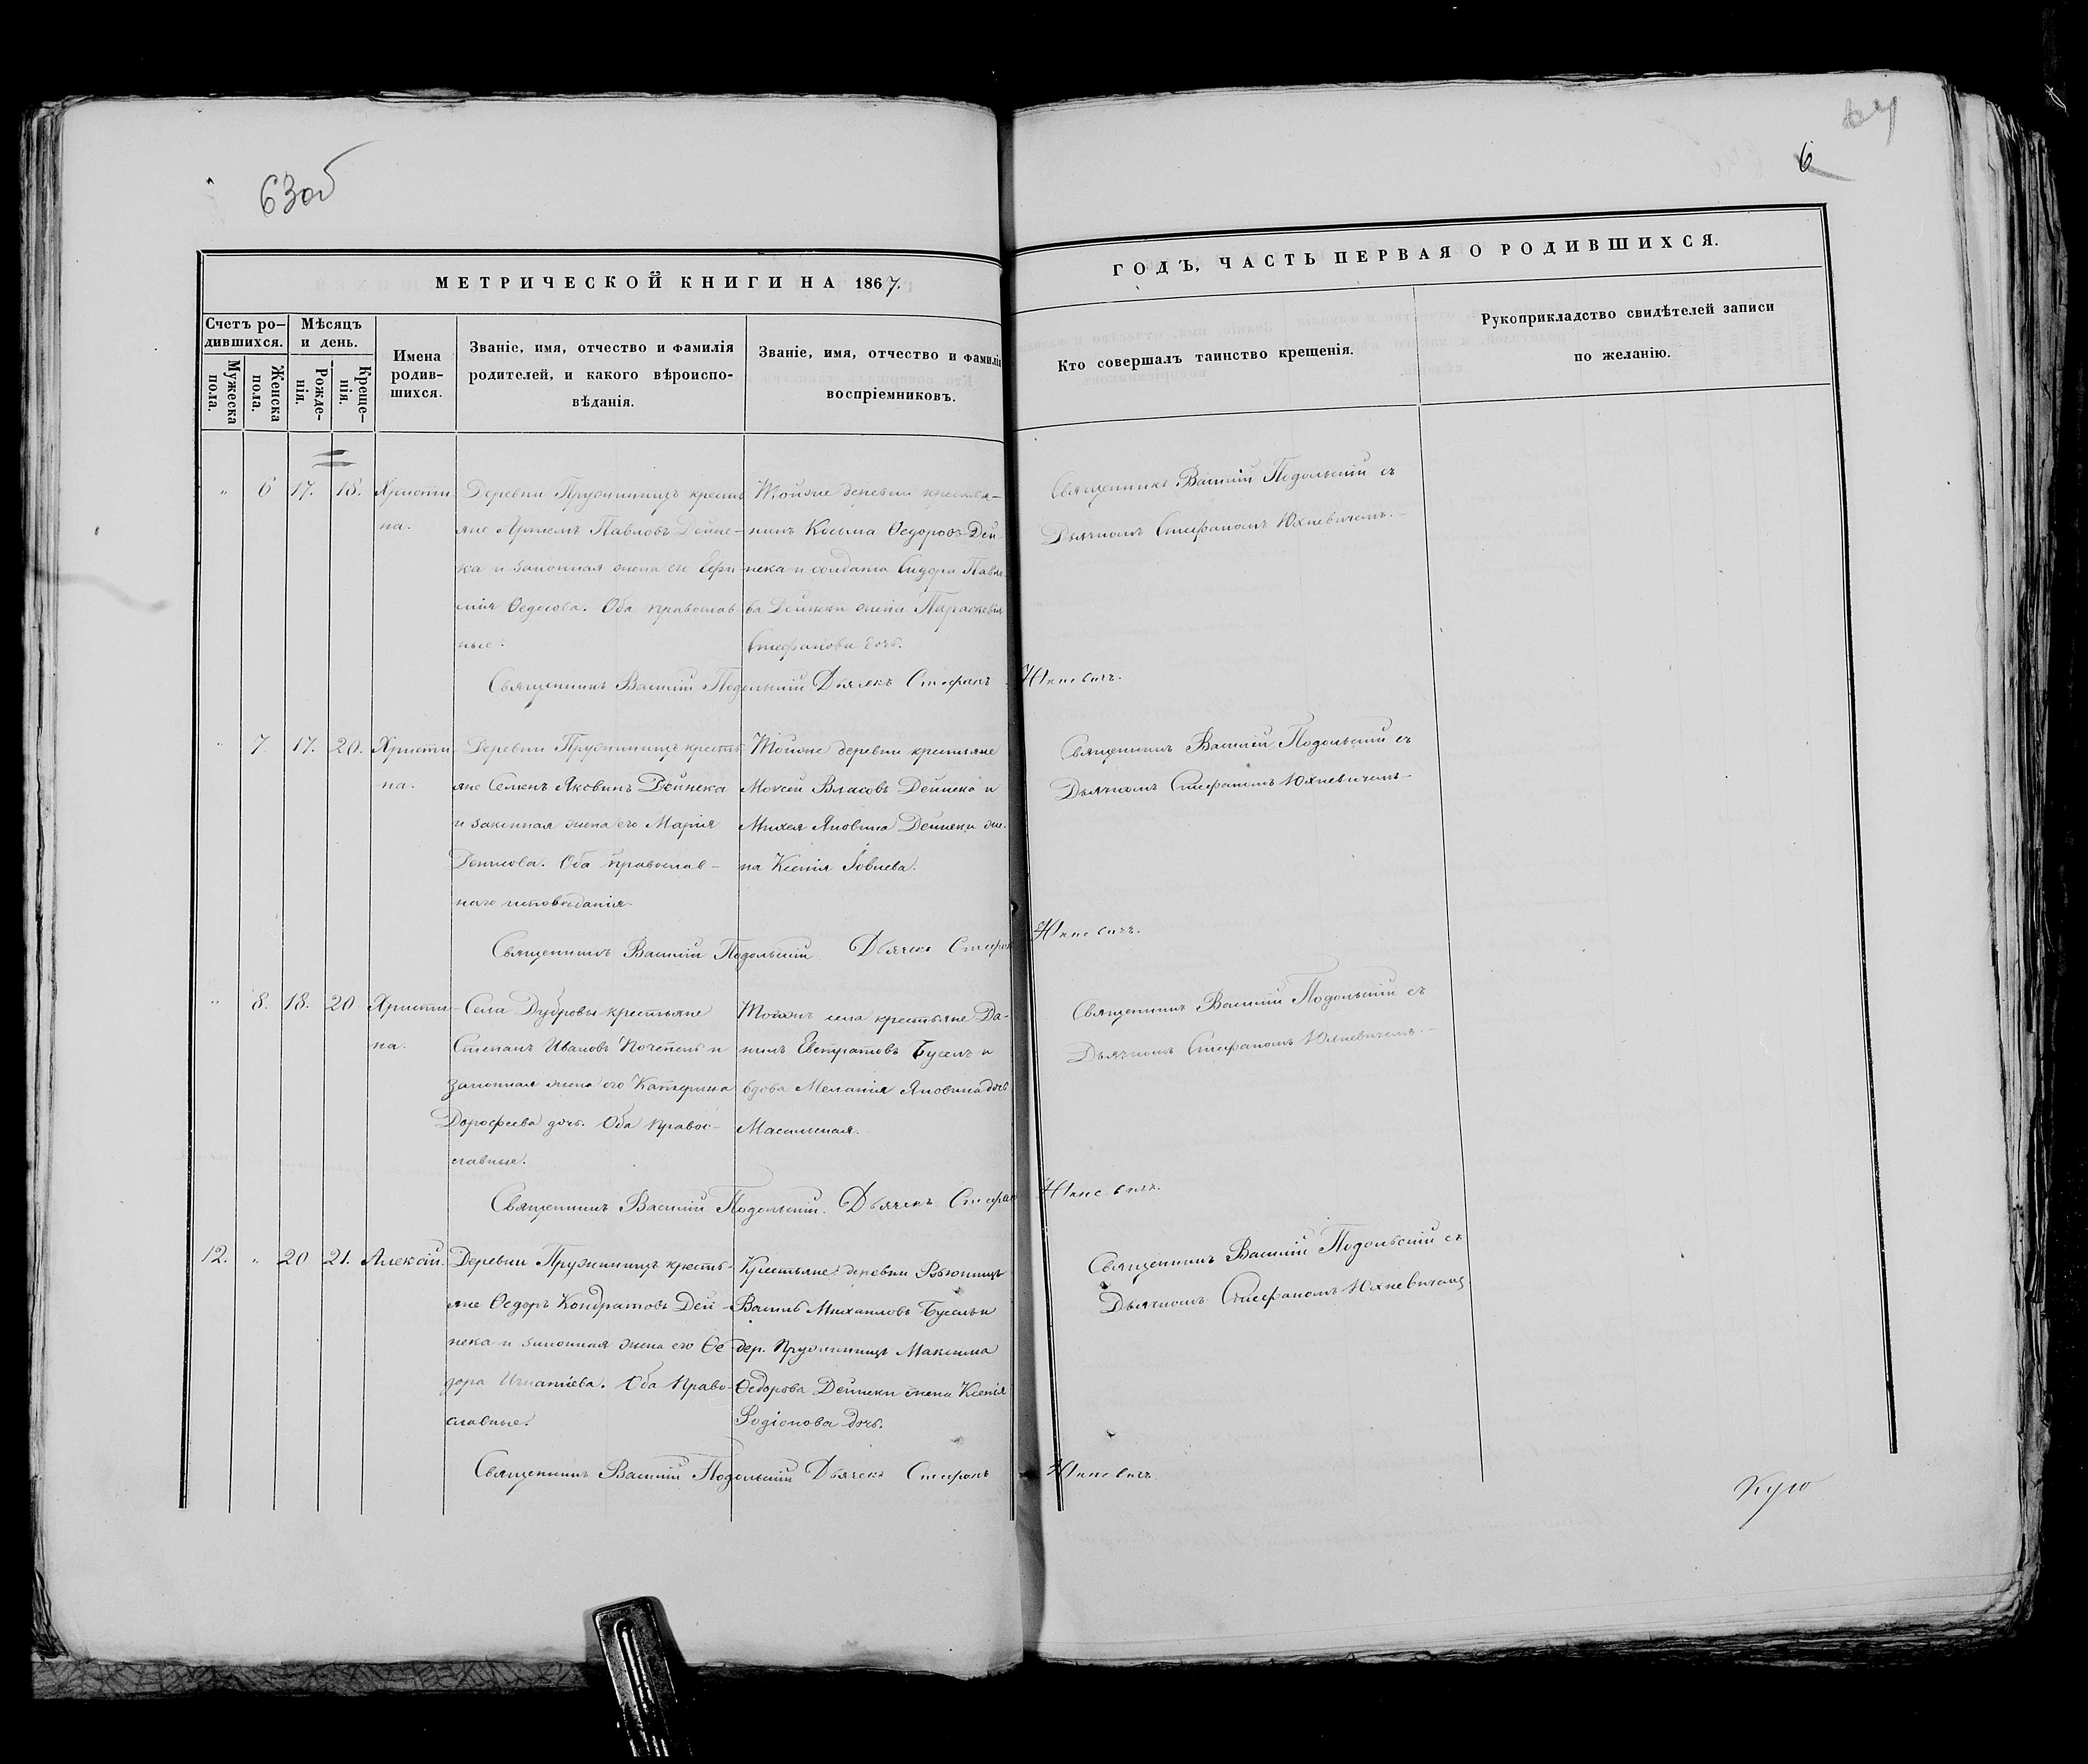 63об
6
64
МЕТРИЧЕСКОЙ КНИГИ НА 1867.
ГОДЪ, ЧАСТЬ ПЕРВАЯ О РОДИВШИХСЯ.
Счетъ ро-
дившихся.
Мужеска
пола.
Женска
пола.
Мѣсяцъ
и день.
Рожде-
нія.
Креще-
нія.
Имена
родив-
шихся.
Званіе, имя, отчество и фамилія
родителей, и какого вѣроиспо-
вѣданія.
Званіе, имя, отчество и фамилія
воспріемниковъ.
Кто совершалъ таинство крещенія.
Рукоприкладство свидѣтелей записи
по желанію.
„ 6 17. 18.
Христи
на.
Деревни Пружиницъ кресть
яне Артемъ Павловъ Дейне-
ка и законная жена его Ефи-
мія Ѳедосова. Оба православ-
ные.
Тойже деревни крестья-
нинъ Косьма Ѳедоровъ Дей
нека и солдата Сидора Павло-
ва Дейнеки жена Параскевія
Стефанова дочь.
Священникъ Василій Подольскій съ
Дьячкомъ Стефаномъ Юхневичемъ.
Священникъ Василій Подольскій Дьячекъ Стефанъ Юхневичъ.
„ 7. 17. 20.
Христи-
на.
Деревни Пружиницъ кресть
яне Семенъ Яковинъ Дейнека
и законная жена его Марія
Денисова. Оба православ-
наго исповѣданія.
Тойже деревни крестьяне
Моисей Власовъ Дейнека и
Михея Яковина Дейнеки же-
на Ксенія Іовиева.
Священникъ Василій Подольскій съ
Дьячкомъ Стефаномъ Юхневичемъ
Священникъ Василій Подольскій Дьячекъ Стефан Юхневичъ.
„ 8. 18. 20
Христи-
на.
Села Дубровы крестьяне
Степанъ Ивановъ и
законная жена его Катерина
Дорофеева дочь. Оба право-
славные.
Тогожъ села крестьяне Да-
нилъ Евстратовъ Бусель и
вдова Меланія Яковина дочь
Священникъ Василій Подольскій съ
Дьячкомъ Стефаномъ Юхневичемъ.
Священникъ Василій Подольскій. Дьячекъ Стефан Юхневичъ.
12. „ 20 21.
Алексій.
Деревни Пружиницъ кресть-
яне Ѳедоръ Кондратовъ Дей-
нека и законная жена его Ѳе
дора Игнатіева. Оба Право-
славные.
Крестьяне: деревни Вьюницъ
Василь Михаиловъ Бусель и
дер. Пружиницъ Максима
Ѳедорова Дейнеки жена Ксенія
Родіонова дочь.
Священникъ Василій Подольскій съ
Дьячкомъ Стефаномъ Юхневичемъ
Священникъ Василій Подольскій Дьячекъ Стефанъ Юхневичъ.